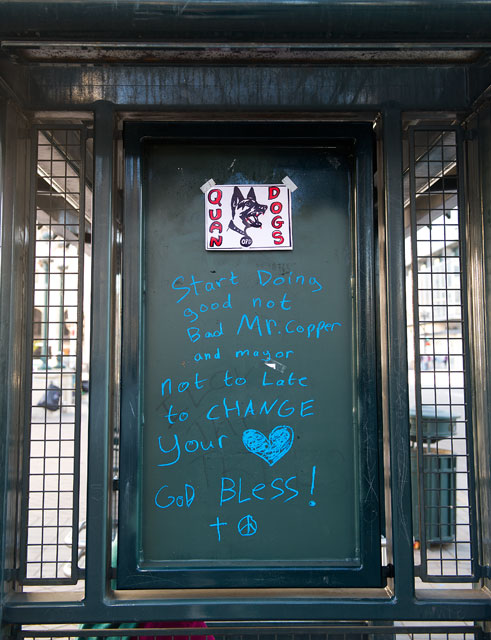 QUAN DOGS
OPD
Start Doing
good not
Bad Mr. Copper
and mayor
not to Late
to CHANGE
Your
GOD BLESS!